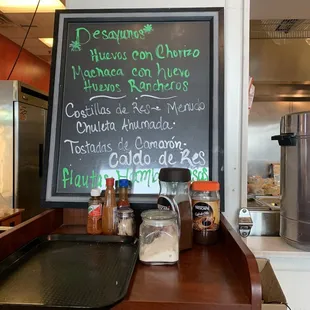 Desayunos
Huevos con Chorizo
Machaca con huevo
Huevos Rancheros
Costillas de Res Menudo
Chuleta Ahumada
Tostadas de Camarón
Caldo de Res
Flautas